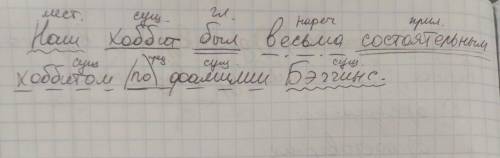 мест. сущ. гл. нареч прил.
Наш хоббит был весьма состоятельным
сущ сущ. сущ.
хоббитом (по) фамилии Бэггинс.